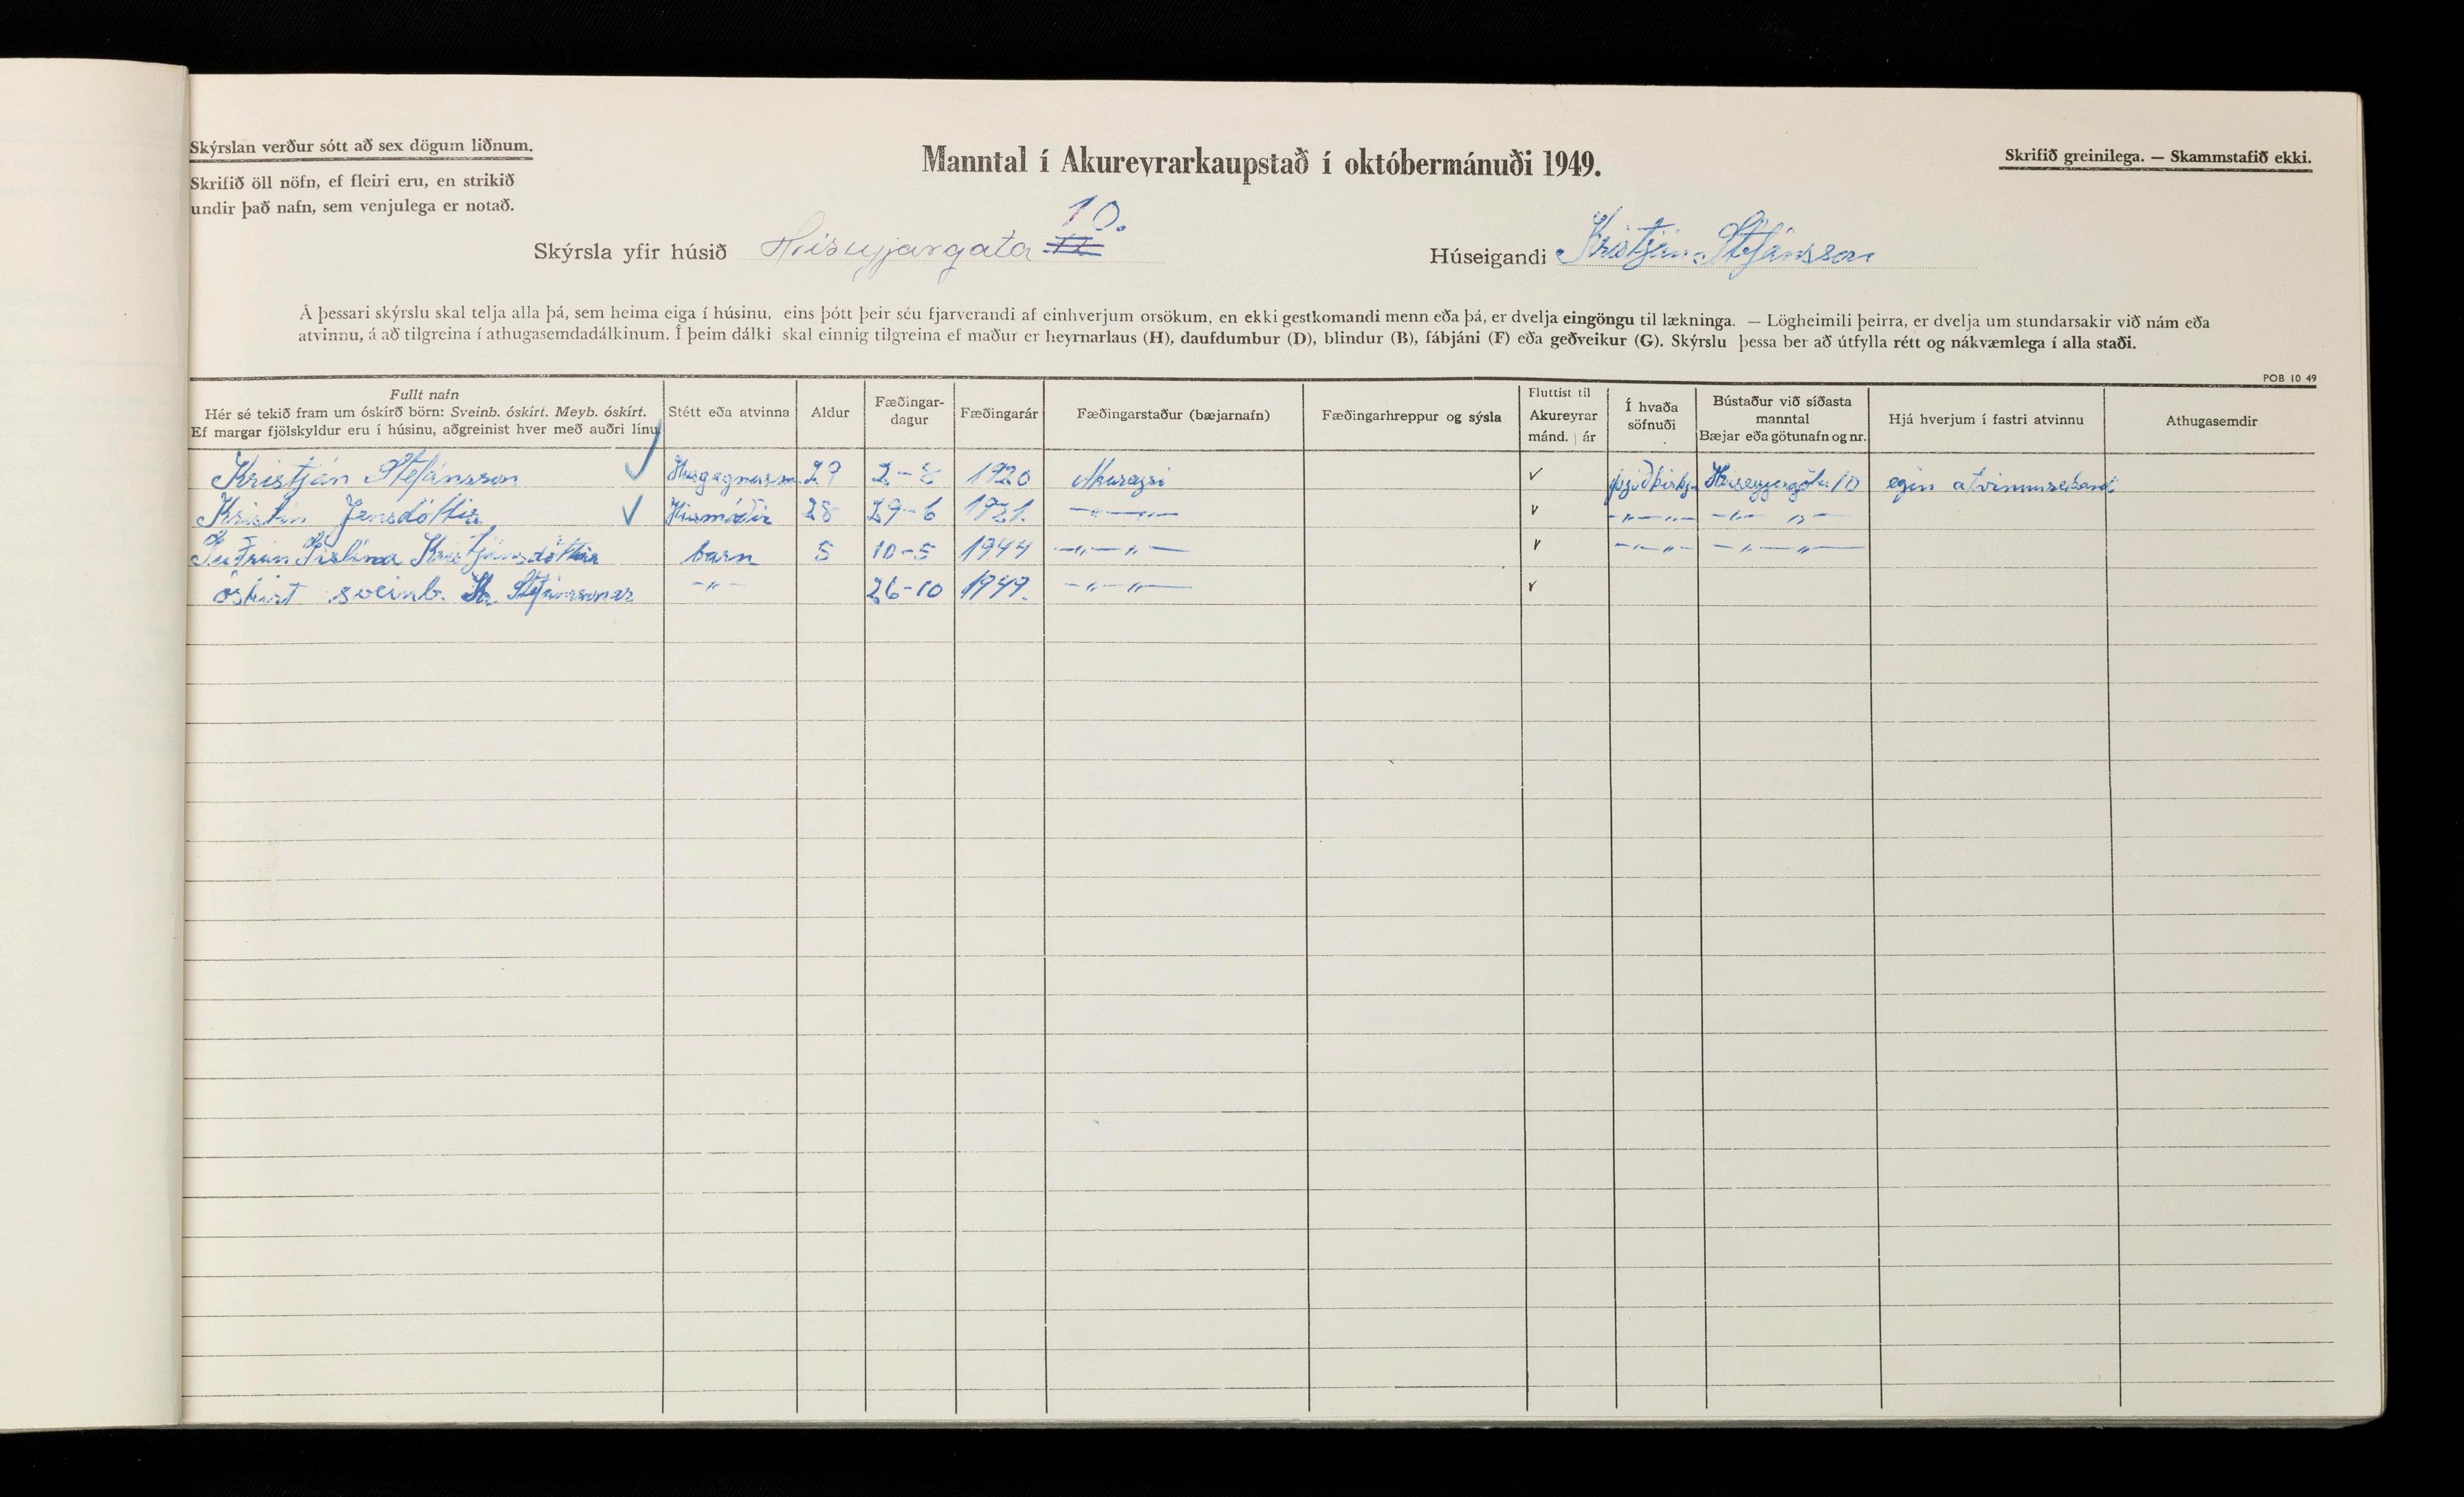 Skýrslan verður sótt að sex dögum liðnum.
Skrifið öll nöfn, ef fleiri eru, en strikið
undir það nafn, sem venjulega er notað.
Manntal í Akureyrarkaupstað í októbermánuði 1949.
Skrifið greinilega. — Skammstafið ekki.
10.
Skýrsla yfir húsið Hríseyjargata
Húseigandi Kristján Stefánsson
Á þessari skýrslu skal telja alla þá, sem heima eiga í húsinu, eins þótt þeir séu fjarverandi af einhverjum orsökum, en ekki gestkomandi menn eða þá, er dvelja eingöngu til lækninga. — Lögheimili þeirra, er dvelja um stundarsakir við nám eða
atvinnu, á að tilgreina í athugasemdadálkinum. Í þeim dálki skal einnig tilgreina ef maður er heyrnarlaus (H), daufdumbur (D), blindur (B), fábjáni (F) eða geðveikur (G). Skýrslu þessa ber að útfylla rétt og nákvæmlega í alla staði.
POB 10 49
Fullt nafn
Hér sé tekið fram um óskírð börn: Sveinb. óskírt. Meyb. óskírt.
Ef margar fjölskyldur eru í húsinu, aðgreinist hver með auðri línu
Stétt eða atvinna
Aldur
Fæðingar-
dagur
Fæðingarár
Fæðingarstaður (bæjarnafn)
Fæðingarhreppur og sýsla
Fluttist til
Akureyrar
mánd. | ár
Í hvaða
söfnuði
Bústaður við síðasta
manntal
Bæjar eða götunafn og nr.
Hjá hverjum í fastri atvinnu
Athugasemdir
Kristján Stefánsson ✓ Húsgagnasm. 29 2-8 1920 Akureyri ✓ þjóðkirkju Hríseyjargötu 10 egin atvinnurekandi
Kristín Jensdóttir ✓ Húsmóðir 28 29-6 1921. —"— ✓ —"—"— —"— "—
Guðrún Gíslína Kristjánsdóttir barn 5 10-5 1944 —"—"— ✓ —"—"— —"—"—
óskírt sveinb. Kr. Stefánssonar —"— 26-10 1949. —"—"— ✓